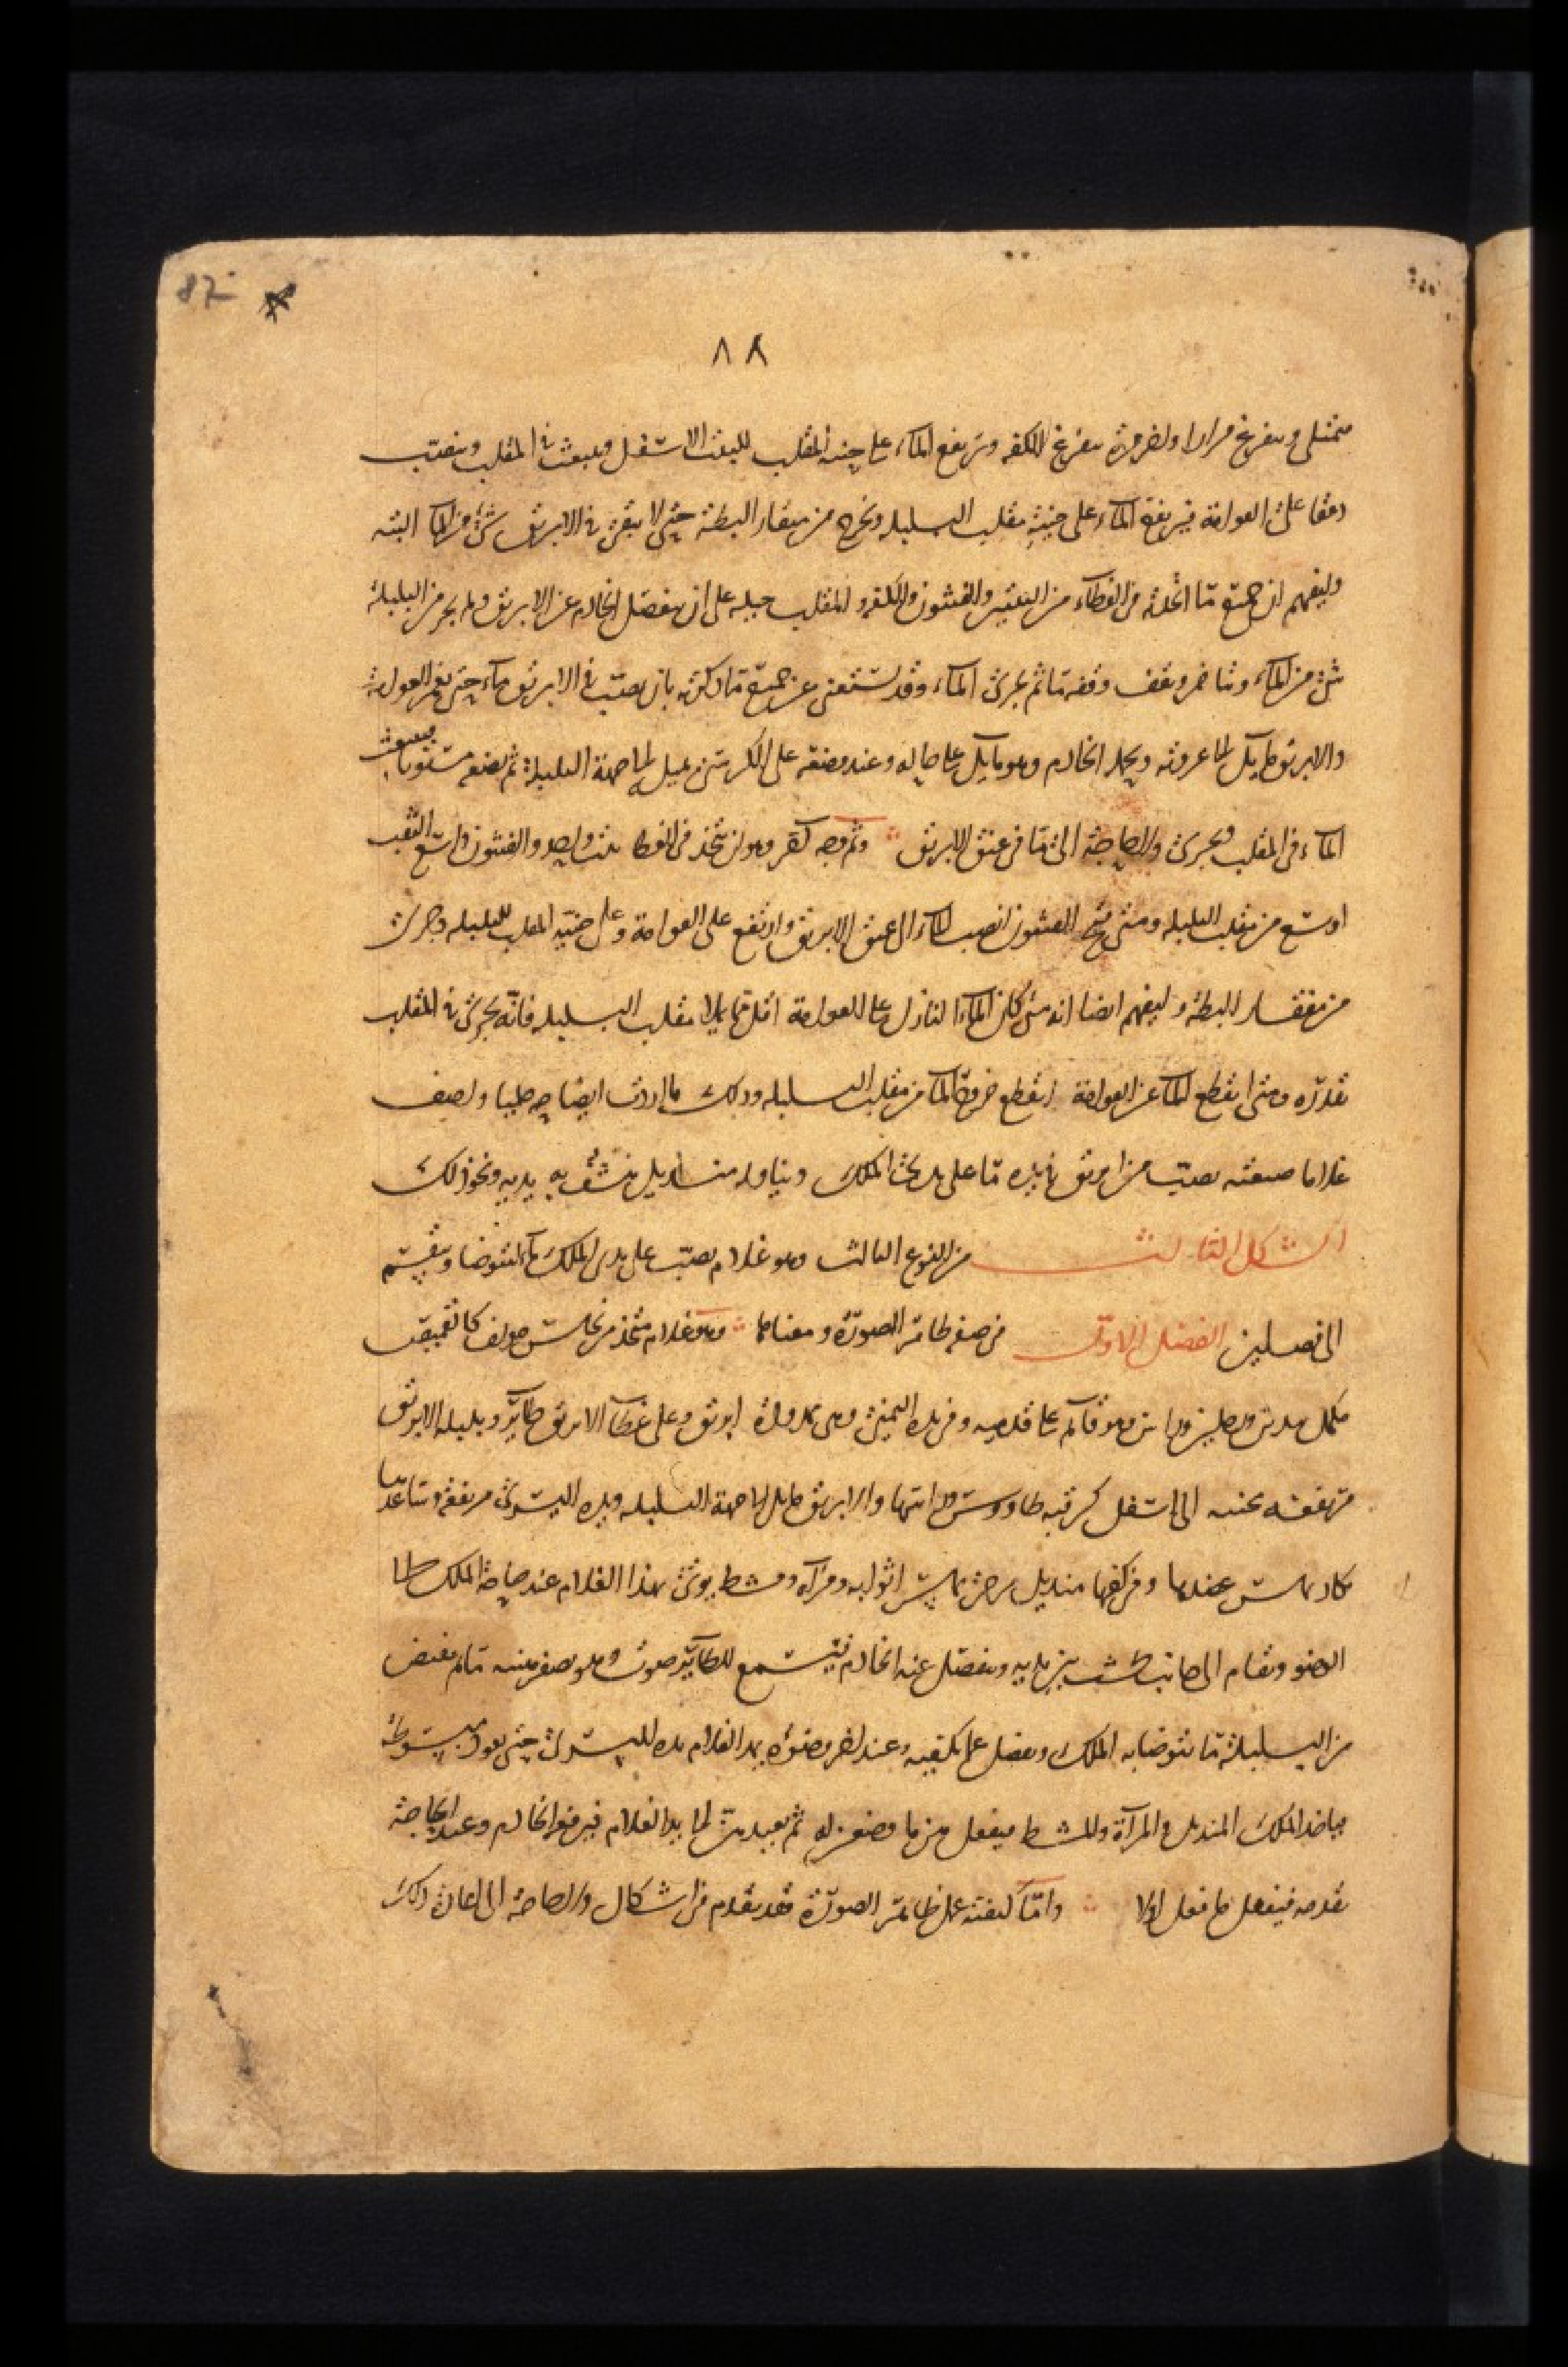 87
٨٨
يمتلى ويتفرغ مرارا واخر مرة يتفرغ الكفة ويرتفع الماء على حنية المقلب للبيت الاسفل وينبعث فى المقلب وينصب
دفقا على العوامة فيرتفع الماء على حنية مقلب البلبلة ويخرج من منقار البطة حتى لا يبقى فى الابريق شى من الماء البتة
وليفهم ان جميع ما اتخذته فى الغطاء من البيتين والفيثون والكفة والمقلب حيلة على ان ينفصل الخادم عن الابريق ولم يجر من البلبلة
شى من الماء وتتاخر ويقف وقفة ما ثم يجرى الماء وقد يستغنى عن جميع ما ذكرته بان يصب فى الابريق ماء حتى يغمر العوامة
والابريق مايل الى عروته ويحمله الخادم وهو مايل على حاله وعند وضعه على الكرسى يميل الى جهة البلبلة ثم يضعه مستويا فينبعث
الماء فى المقلب ويجرى ولا حاجة الى ما فى عنق الابريق وثم وجه آخر وهو ان يتخذ فى الغطا بيت واحد والفيثون واسع الثقب
اوسع من مقلب البلبلة ومتى فتح الفيثون انصب الماء الى عنق الابريق وارتفع على العوامة وعلى حنية المقلب للبلبلة وجرى
من منقار البطة وليفهم ايضا انه متى كان الماء النازل على العوامة اقل مما يملا مقلب البلبلة فانه يجرى فى المقلب
بقدره ومتى انقطع الماء عن العوامة انقطع خروج الماء من مقلب البلبلة وذلك ما اردت ايضاحه جليا واصف
غلاما صنعته يصب من ابريق فى يده ما على يدى الملك ويناوله منديل ينشف به يديه ونحو ذلك
الشكل الثالث من النوع الثالث وهو غلام يصب على يدى الملك ماء ليتوضا وينقسم
الى فصلين الفصل الاول فى صفة ظاهر الصورة ومعناها وهو غلام متخذ من نحاس مولف كالقميص
مكمل بيدين ورجلين وراس وهو قايم على قدميه وفى يده اليمنى وهى ممدودة ابريق وعلى غطاء الابريق طاير وبلبلة الابريق
مرتفعة منحنية الى اسفل كرقبة طاووس وراسها والابريق مايل الى جهة البلبلة ويده اليسرى مرتفعة وساعدها
يكاد يماس عضدها وفى كفها منديل مرخى يماس اثوابه ومرآة ومشط يوتى بهذا الغلام عند حاجة الملك الى
الوضو ويقام الى جانب طشت بين يديه وينفصل عنه الخادم فيستمع للطاير صوت وهو يصفر مليا ثم يفيض
من البلبلة ما يتوضا به الملك ويفضل عما يكفيه وعند اخر وضوئه يمد الغلام يده اليسرى حتى يعود مبسوطة
فياخذ الملك المنديل والمرآة والمشط فيفعل بهن ما وضعن له ثم يعيدهن الى يد الغلام فيرفعه الخادم وعند الحاجة
يقدمه فيفعل ما فعل اولا وامّا كيفية عمل ظاهر الصورة فقد تقدم فى اشكال ولا حاجة الى اعادة ذلك